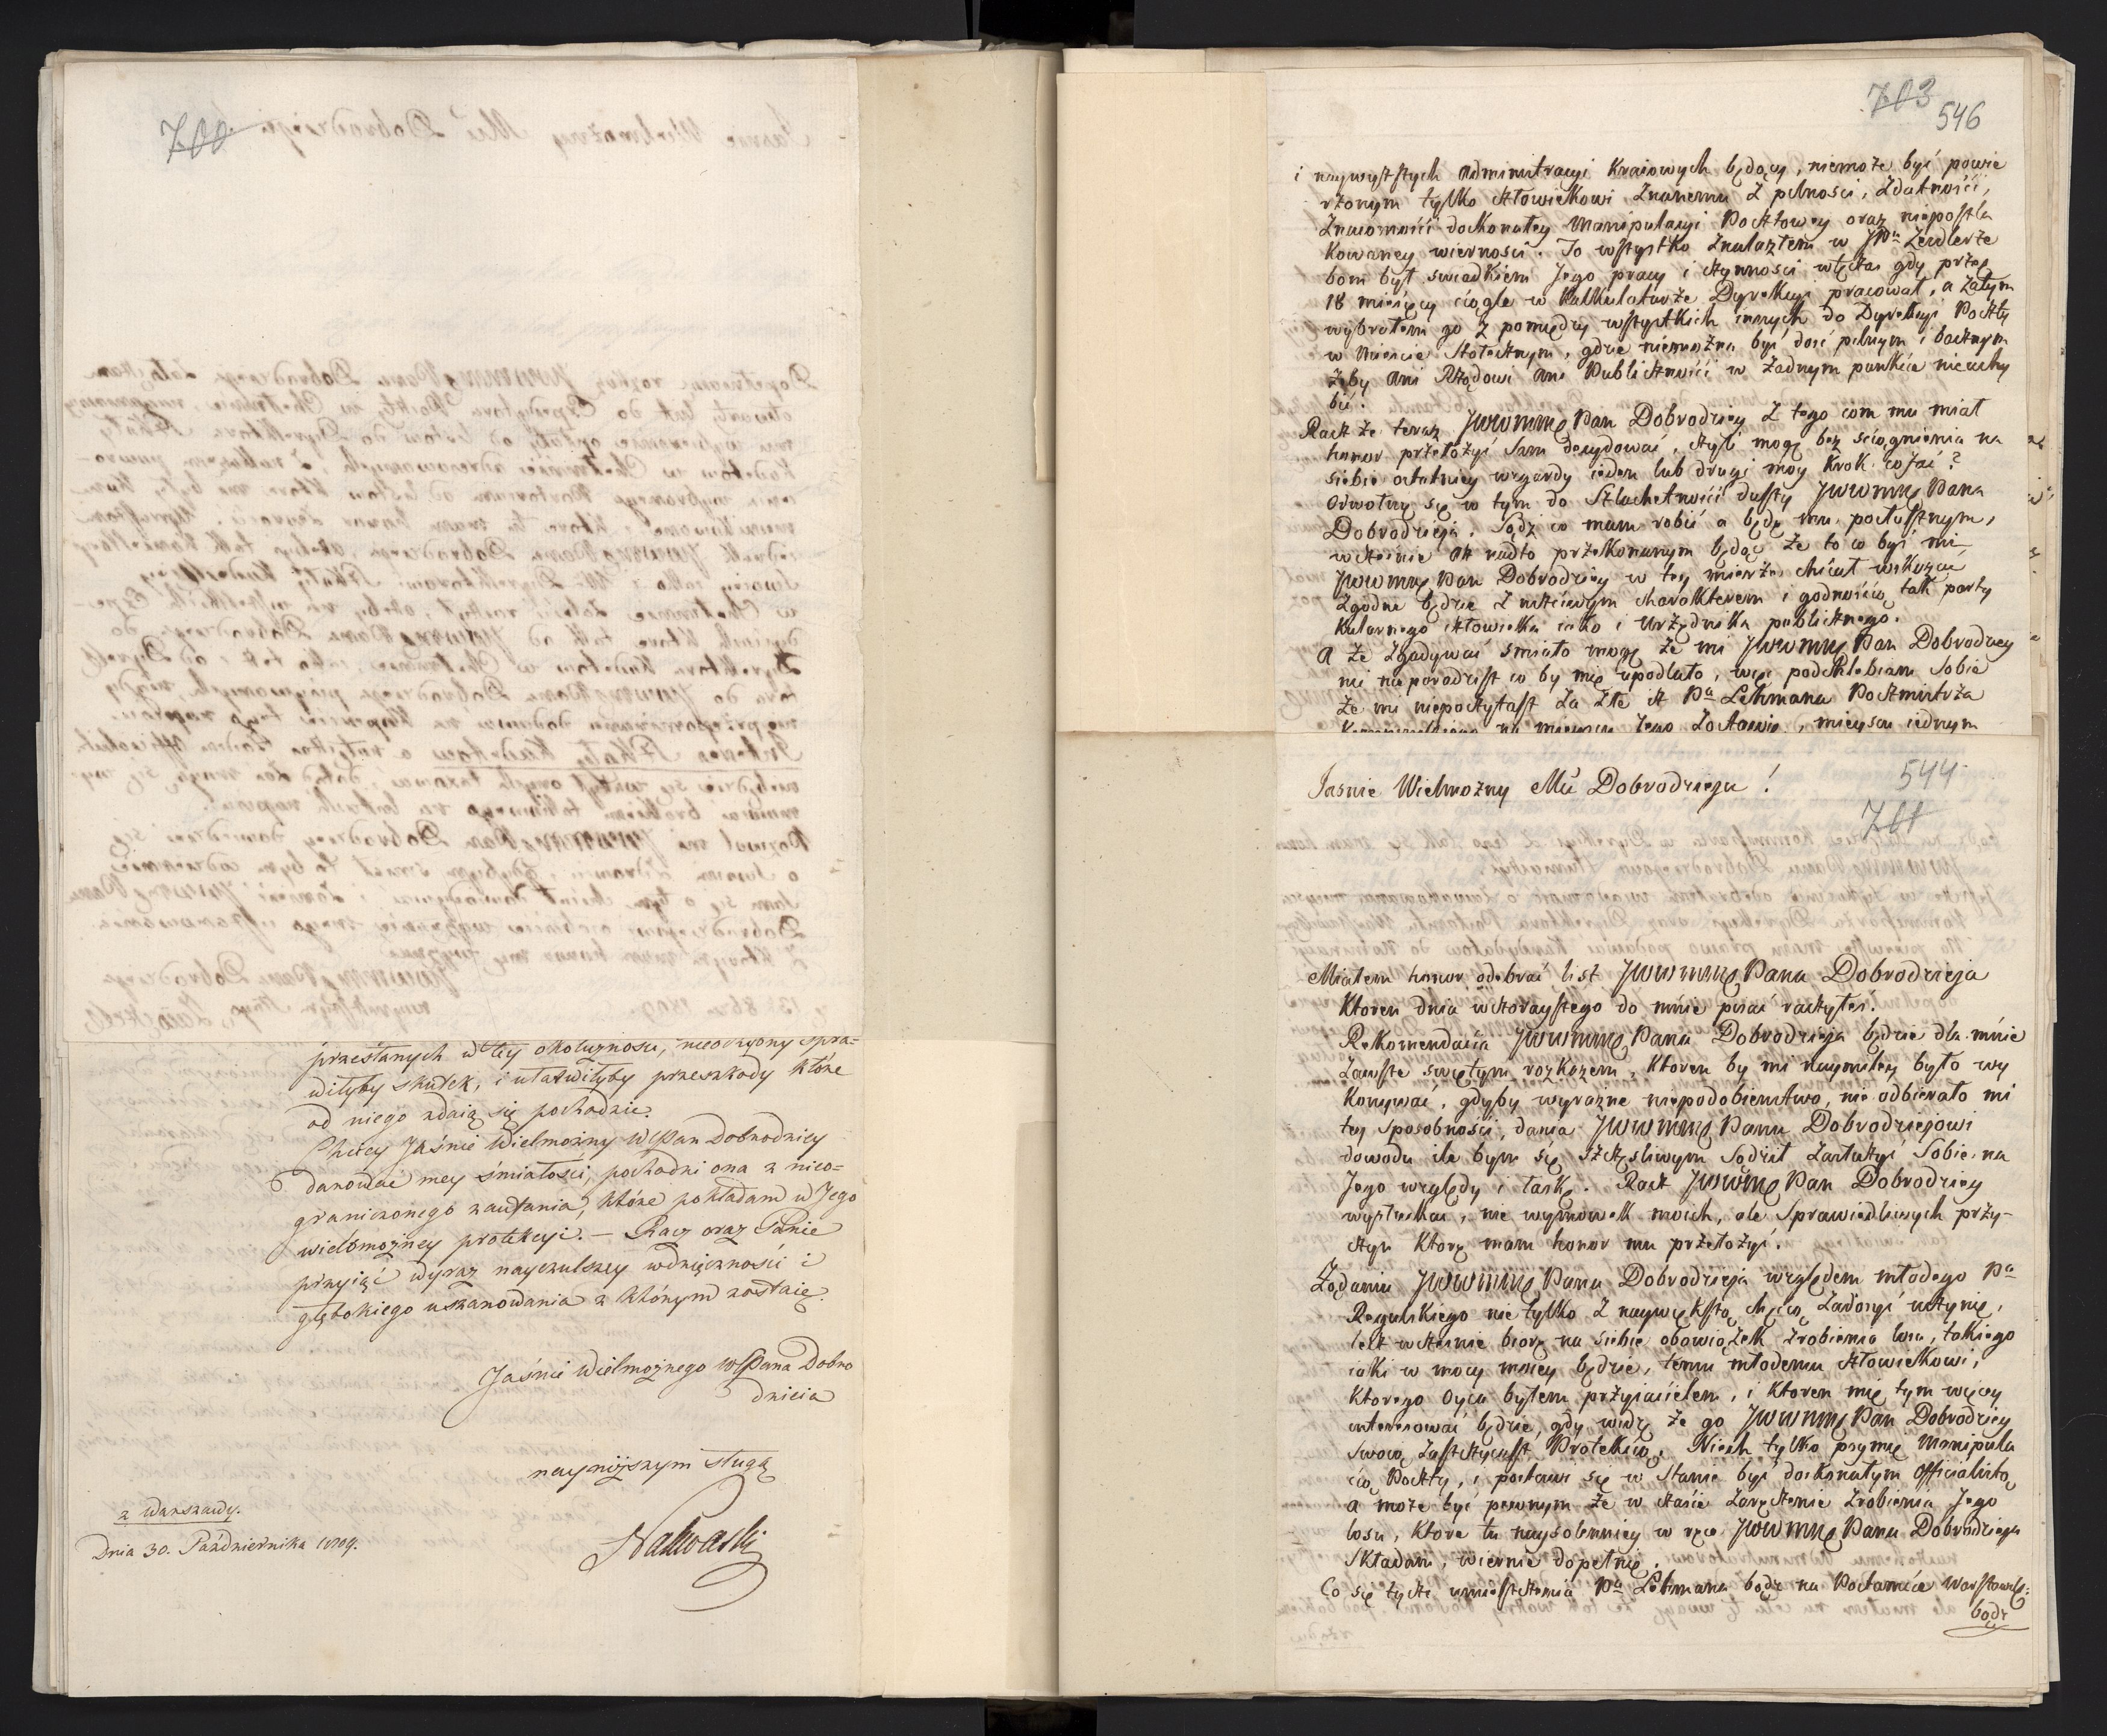 700.
przesłanych w tey okoliczności, nieochyony spra=
wiłyby skutek, i ułatwiłyby przeszkody które
od niego zdaią się pochodzić.
Chciey Jaśnie Wielmożny WPan Dobrodziey
darować mey śmiałości, pochodzi ona z nieo=
graniczonego zaufania, które pokładam w Jego
wielomożney protekcyi. — Racz oraz Panie
przyiąć wyraz nayczulszey wdzięczności i
głębokiego uszanowania z którym zostaię.
Jaśnie Wielmożnego WPana Dobro
dzieia
nayniższym sługą
Nakwaski
z Warszawy.
Dnia 30. Października 1809.
703
546
i naywyższych Administracyi Kraiowych będący, niemoże być powie
rzonym tylko człowiekowi Znanemu Z pilności, Zdatności,
Znaiomości dokonałey Manipulacyi Pocztowey oraz nieposzla
kowaney wierności. To wszystko Znalazłem w JPu Zeidlerze
bom był swiadkiem Jego pracy i czynności wtęczas gdy przez
18 miesięcy ciągle w Kalkulaturze Dyrekcyi pracował, a Zatym
wybrałem go Z pomiędzy wszystkich innych do Dyrekcyi Poczty
w Mieście Stołecznym, gdzie niemożna być dość pilnym i bacznym
żeby Ani Rządowi Ani Publiczności w Żadnym punkcie nieuchy
bić.
Racz że teraz JWWMMę Pan Dobrodziey Z tego com mu miał
honor przełożyć Sam decydować, czyli mogę bez ściągnienia na
siebie ostatniey wzgardy ieden lub drugi moy Krok cofać?
Odwołuę się w tym do Szlachetności duszy JWWMMę Pana
Dobrodzieja. Sądź co mam robić a będę mu posłusznym,
wcześnie Aż nadto przekonanym będąc Że to co być mi
JWWMMę Pan Dobrodziey w tey mierze chciał wskazać
Zgodne będzie Z uczciwym charakterem i godnością tak party
kularnego człowieka iako i Urzędnika publicznego.
A Że Zgadywać śmiało mogę Że mi JWWMMę Pan Dobrodziey
nie nieporadzisz co by mię upodlało, więc podchlebiam Sobie
Że mi niepoczytasz Za Złe iż Pa Lehmana Poczmistrza
na mieyscu Jego Zostawię, mieysca iednym
544
701
Jasnie Wielmożny Mći Dobrodzieju!
Miałem honor odebrać list JWWMMę Pana Dobrodzieja
Ktoren dnia wczorayszego do mnie pisać raczyłeś.
Rekomendacia JWWMMę Pana Dobrodzieja będzie dla mnie
Zawsze swiętym rozkazem, Ktoren by mi naymiley było wy
konywać, gdyby wyraźne niepodobieństwo, nie odbierało mi
tey Sposobności, dania JWWMMę Panu Dobrodziejowi
dowodu ile bym się szczęśliwym Sądził Zasłużyć Sobie na
Jego względy i łaskę. Racz JWWMMę Pan Dobrodziey
wysłuchać, nie wymówek moich, ale Sprawiedliwych przy-
czyn Które mam honor mu przełożyć.
Żądaniu JWWMMę Pana Dobrodzieja względem młodego Pa
Rogulskiego nie tylko Z naywiększą chęcią Zadosyć uczynię,
lecz wcześnie biorę na siebie obowiązek Zrobienia losu, takiego
iaki w mocy moiey będzie, temu młodemu człowiekowi,
Ktorego Oyca byłem przyiacielem, i Ktoren mię tym więcey
interesować będzie, gdy widzę Że go JWWMMę Pan Dobrodziey
Swoią Zaszczycasz Protekcią. Niech tylko poymie Manipula
cią Poczty, i postawi się w Stanie być doskonałym Officialistą
a może być pewnym Że w czasie Zaręczenie Zrobienia Jego
losu, Które tu naysolenniey w ręce JWWMMę Pana Dobrodzieja
Składam, wiernie dopełnię.
Co się tycze umieszczenia Pa Lehmana bądź na Poctamcie Warszawsk:
bądź